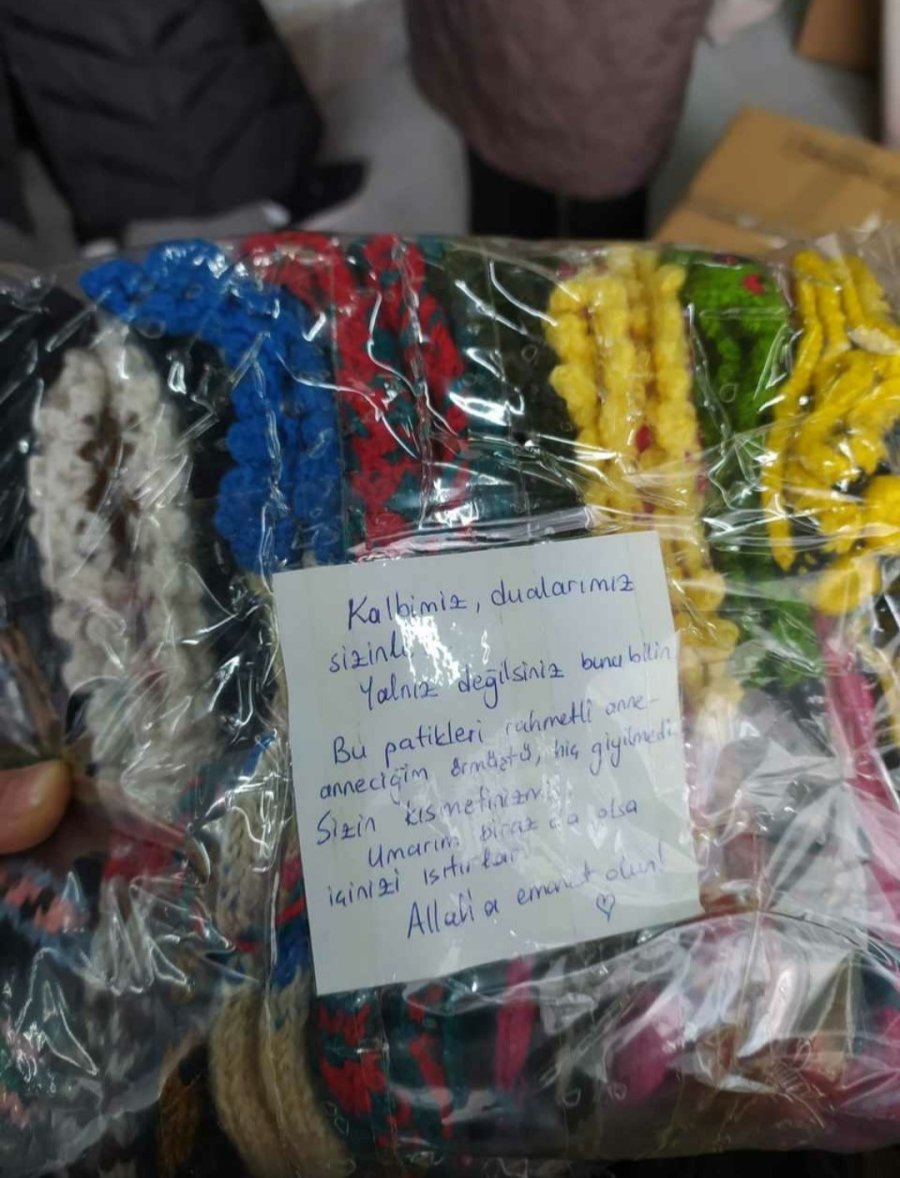 Kalbimiz, dualarımız
sizinle
Yalnız değilsiniz bunu bilin
Bu patikleri rahmetli anne-
anneciğim örmüştü, hiç giyilmedi
Sizin kısmetinizmiş
Umarım biraz da olsa
içinizi ısıtırlar
Allah'a emanet olun!